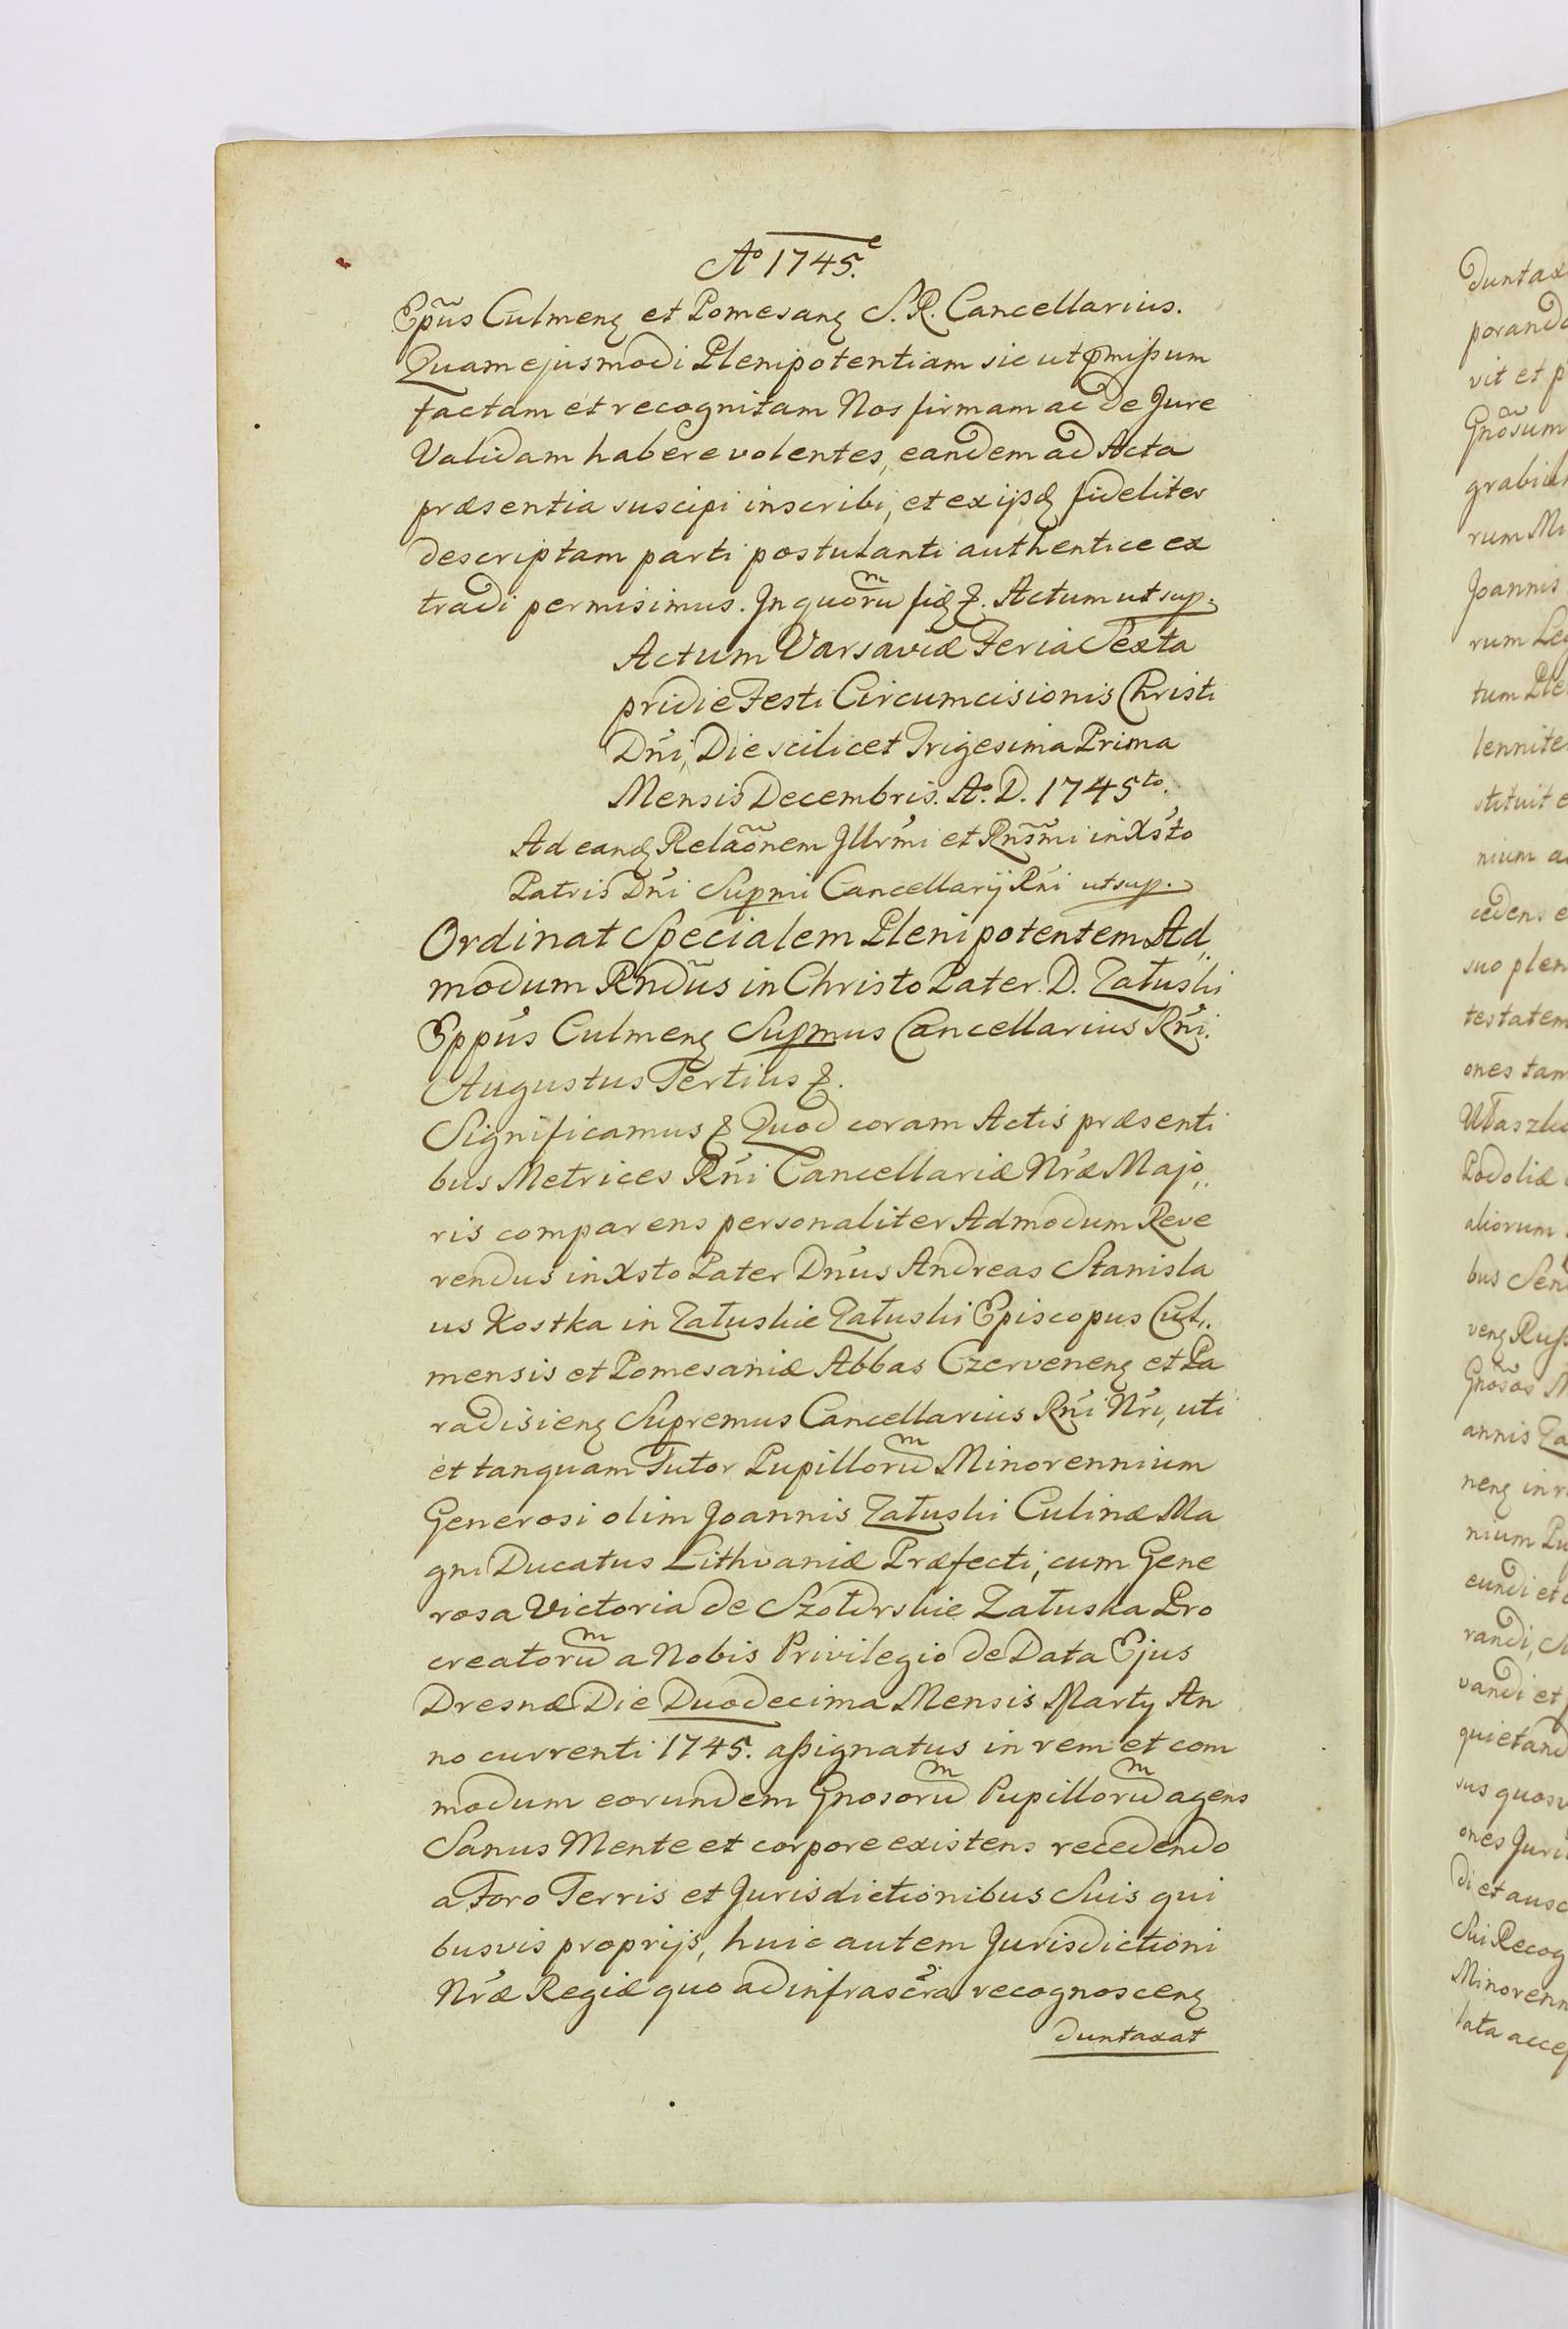 Aº 1745.
Epũs Culmenꝫ et Pomesanꝫ S. R. Cancellarius.
Quam ejusmodi Plenipotentiam sic ut pmißum
factam et recognitam Nos firmam ac de Jure
Validam habere volentes, eandem ad Acta
præsentia suscipi inscribi, et ex ijsdꝫ fideliter
descriptam parti postulanti authentice ex
tradi permisimus. In quoru͂m fidꝫ &. Actum ut sup.
Actum Varsaviæ Feria Sexta
pridie Festi Circumcisionis Christi
Dńi, Die scilicet Trigesima Prima
Mensis Decembris. Aº. D. 1745to.
Ad eandꝫ Relãonem Jllrḿi et Rnd̃smi in Xśto
Patris Dńi Supmi Cancellarij Rńi ut sup.
Ordinat Specialem Plenipotentem Ad„
modum Rndũs in Christo Pater. D. Załuski
Eppús Culmenꝫ Supmus Cancellarius Rńi.
Augustus Tertius &.
Significamus & Quod coram Actis præsenti
bus Metrices Rńi Cancellariæ Nŕæ Majo„
ris comparens personaliter Admodum Reve
rendus in Xsto Pater Dnús Andreas Stanisla
us Kostka in Załuskie Załuski Episcopus Cul„
mensis et Pomesaniæ Abbas Czervenenꝫ et Pa
radisienꝫ Supremus Cancellarius Rńi Nŕi, uti
et tanquam Tutor Pupilloru͂m Minorennium
Generosi olim Joannis Załuski Culinæ Ma
gni Ducatus Lithvaniæ Præfecti, cum Gene
rosa Victoria de Szołdrskie Załuska Pro
creatoru͂m a Nobis Privilegio de Data Ejus
Dresnæ Die Duodecima Mensis Martij An
no currenti 1745. aßignatus in rem et com
modum eorundem Gnosoru͂m Pupilloru͂m agens
Sanus Mente et corpore existens recedendo
a Foro Terris et Jurisdictionibus Suis qui
busvis proprijs, huic autem Jurisdictioni
Nŕæ Regiæ quo ad infrascŕa recognoscenꝫ
duntaxat